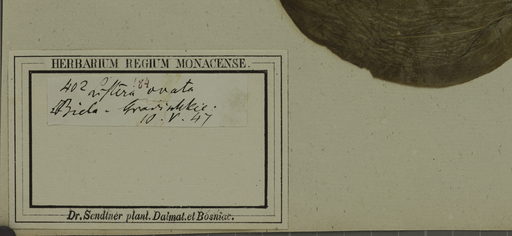 HERBARIUM REGIUM MONACENSE.
402 Listera ovata
Biela - Gradishkie.
10. V. 47
Dr. Sendtner plant. Dalmat. et Bosniac.